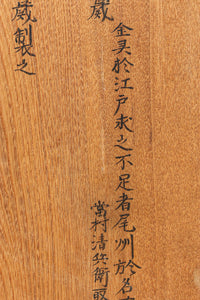 金具於江戸求之不足者尾州於名
當村清兵衛取
蔵
蔵製之